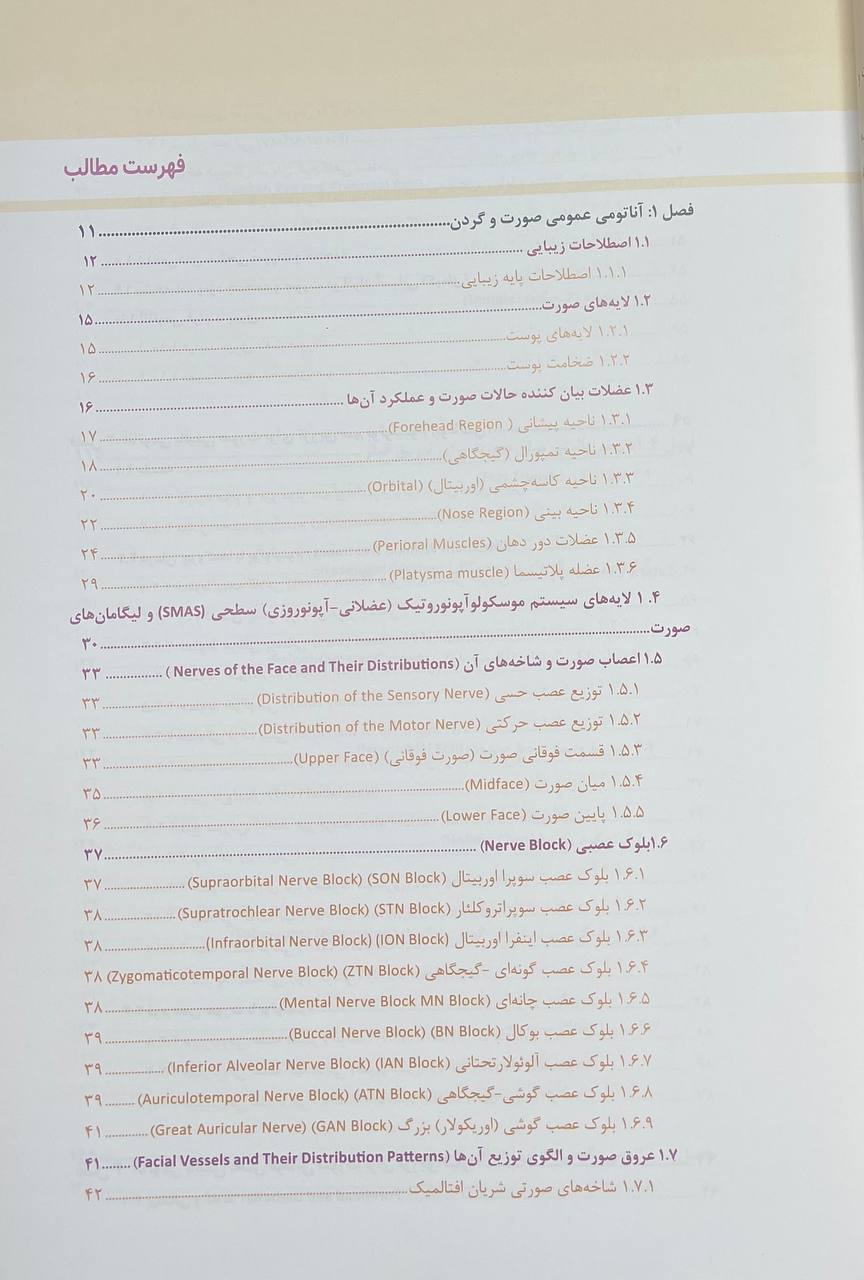 فهرست مطالب
فصل ۱: آناتومی عمومی صورت و گردن ........ ۱۱
۱.۱ اصطلاحات زیبایی ........ ۱۲
۱.۱.۱ اصطلاحات پایه زیبایی ........ ۱۲
۱.۲ لایه‌های صورت ........ ۱۵
۱.۲.۱ لایه‌های پوست ........ ۱۵
۱.۲.۲ ضخامت پوست ........ ۱۶
۱.۳ عضلات بیان کننده حالات صورت و عملکرد آن‌ها ........ ۱۶
۱.۳.۱ ناحیه پیشانی ( Forehead Region) ........ ۱۷
۱.۳.۲ ناحیه تمپورال (گیجگاهی) ........ ۱۸
۱.۳.۳ ناحیه کاسه‌چشمی (اوربیتال) (Orbital) ........ ۲۰
۱.۳.۴ ناحیه بینی (Nose Region) ........ ۲۲
۱.۳.۵ عضلات دور دهان (Perioral Muscles) ........ ۲۴
۱.۳.۶ عضله پلاتیسما (Platysma muscle) ........ ۲۹
۱.۴ لایه‌های سیستم موسکولوآپونوروتیک (عضلانی-آپونوروزی) سطحی (SMAS) و لیگامان‌های
صورت ........ ۳۰
۱.۵ اعصاب صورت و شاخه‌های آن (Nerves of the Face and Their Distributions ) ........ ۳۳
۱.۵.۱ توزیع عصب حسی (Distribution of the Sensory Nerve) ........ ۳۳
۱.۵.۲ توزیع عصب حرکتی (Distribution of the Motor Nerve) ........ ۳۳
۱.۵.۳ قسمت فوقانی صورت (صورت فوقانی) (Upper Face) ........ ۳۳
۱.۵.۴ میان صورت (Midface) ........ ۳۵
۱.۵.۵ پایین صورت (Lower Face) ........ ۳۶
۱.۶بلوک عصبی (Nerve Block) ........ ۳۷
۱.۶.۱ بلوک عصب سوپرا اوربیتال (Supraorbital Nerve Block) (SON Block) ........ ۳۷
۱.۶.۲ بلوک عصب سوپراتروکلئار (Supratrochlear Nerve Block) (STN Block) ........ ۳۸
۱.۶.۳ بلوک عصب اینفرا اوربیتال (Infraorbital Nerve Block) (ION Block) ........ ۳۸
۱.۶.۴ بلوک عصب گونه‌ای -گیجگاهی (Zygomaticotemporal Nerve Block) (ZTN Block) ۳۸
۱.۶.۵ بلوک عصب چانه‌ای (Mental Nerve Block MN Block) ........ ۳۸
۱.۶.۶ بلوک عصب بوکال (Buccal Nerve Block) (BN Block) ........ ۳۹
۱.۶.۷ بلوک عصب آلوئولار تحتانی (Inferior Alveolar Nerve Block) (IAN Block) ........ ۳۹
۱.۶.۸ بلوک عصب گوشی-گیجگاهی (Auriculotemporal Nerve Block) (ATN Block) ........ ۳۹
۱.۶.۹ بلوک عصب گوشی (اوریکولار) بزرگ (Great Auricular Nerve) (GAN Block) ........ ۴۱
۱.۷ عروق صورت و الگوی توزیع آن‌ها (Facial Vessels and Their Distribution Patterns) ........ ۴۱
۱.۷.۱ شاخه‌های صورتی شریان افتالمیک ........ ۴۲